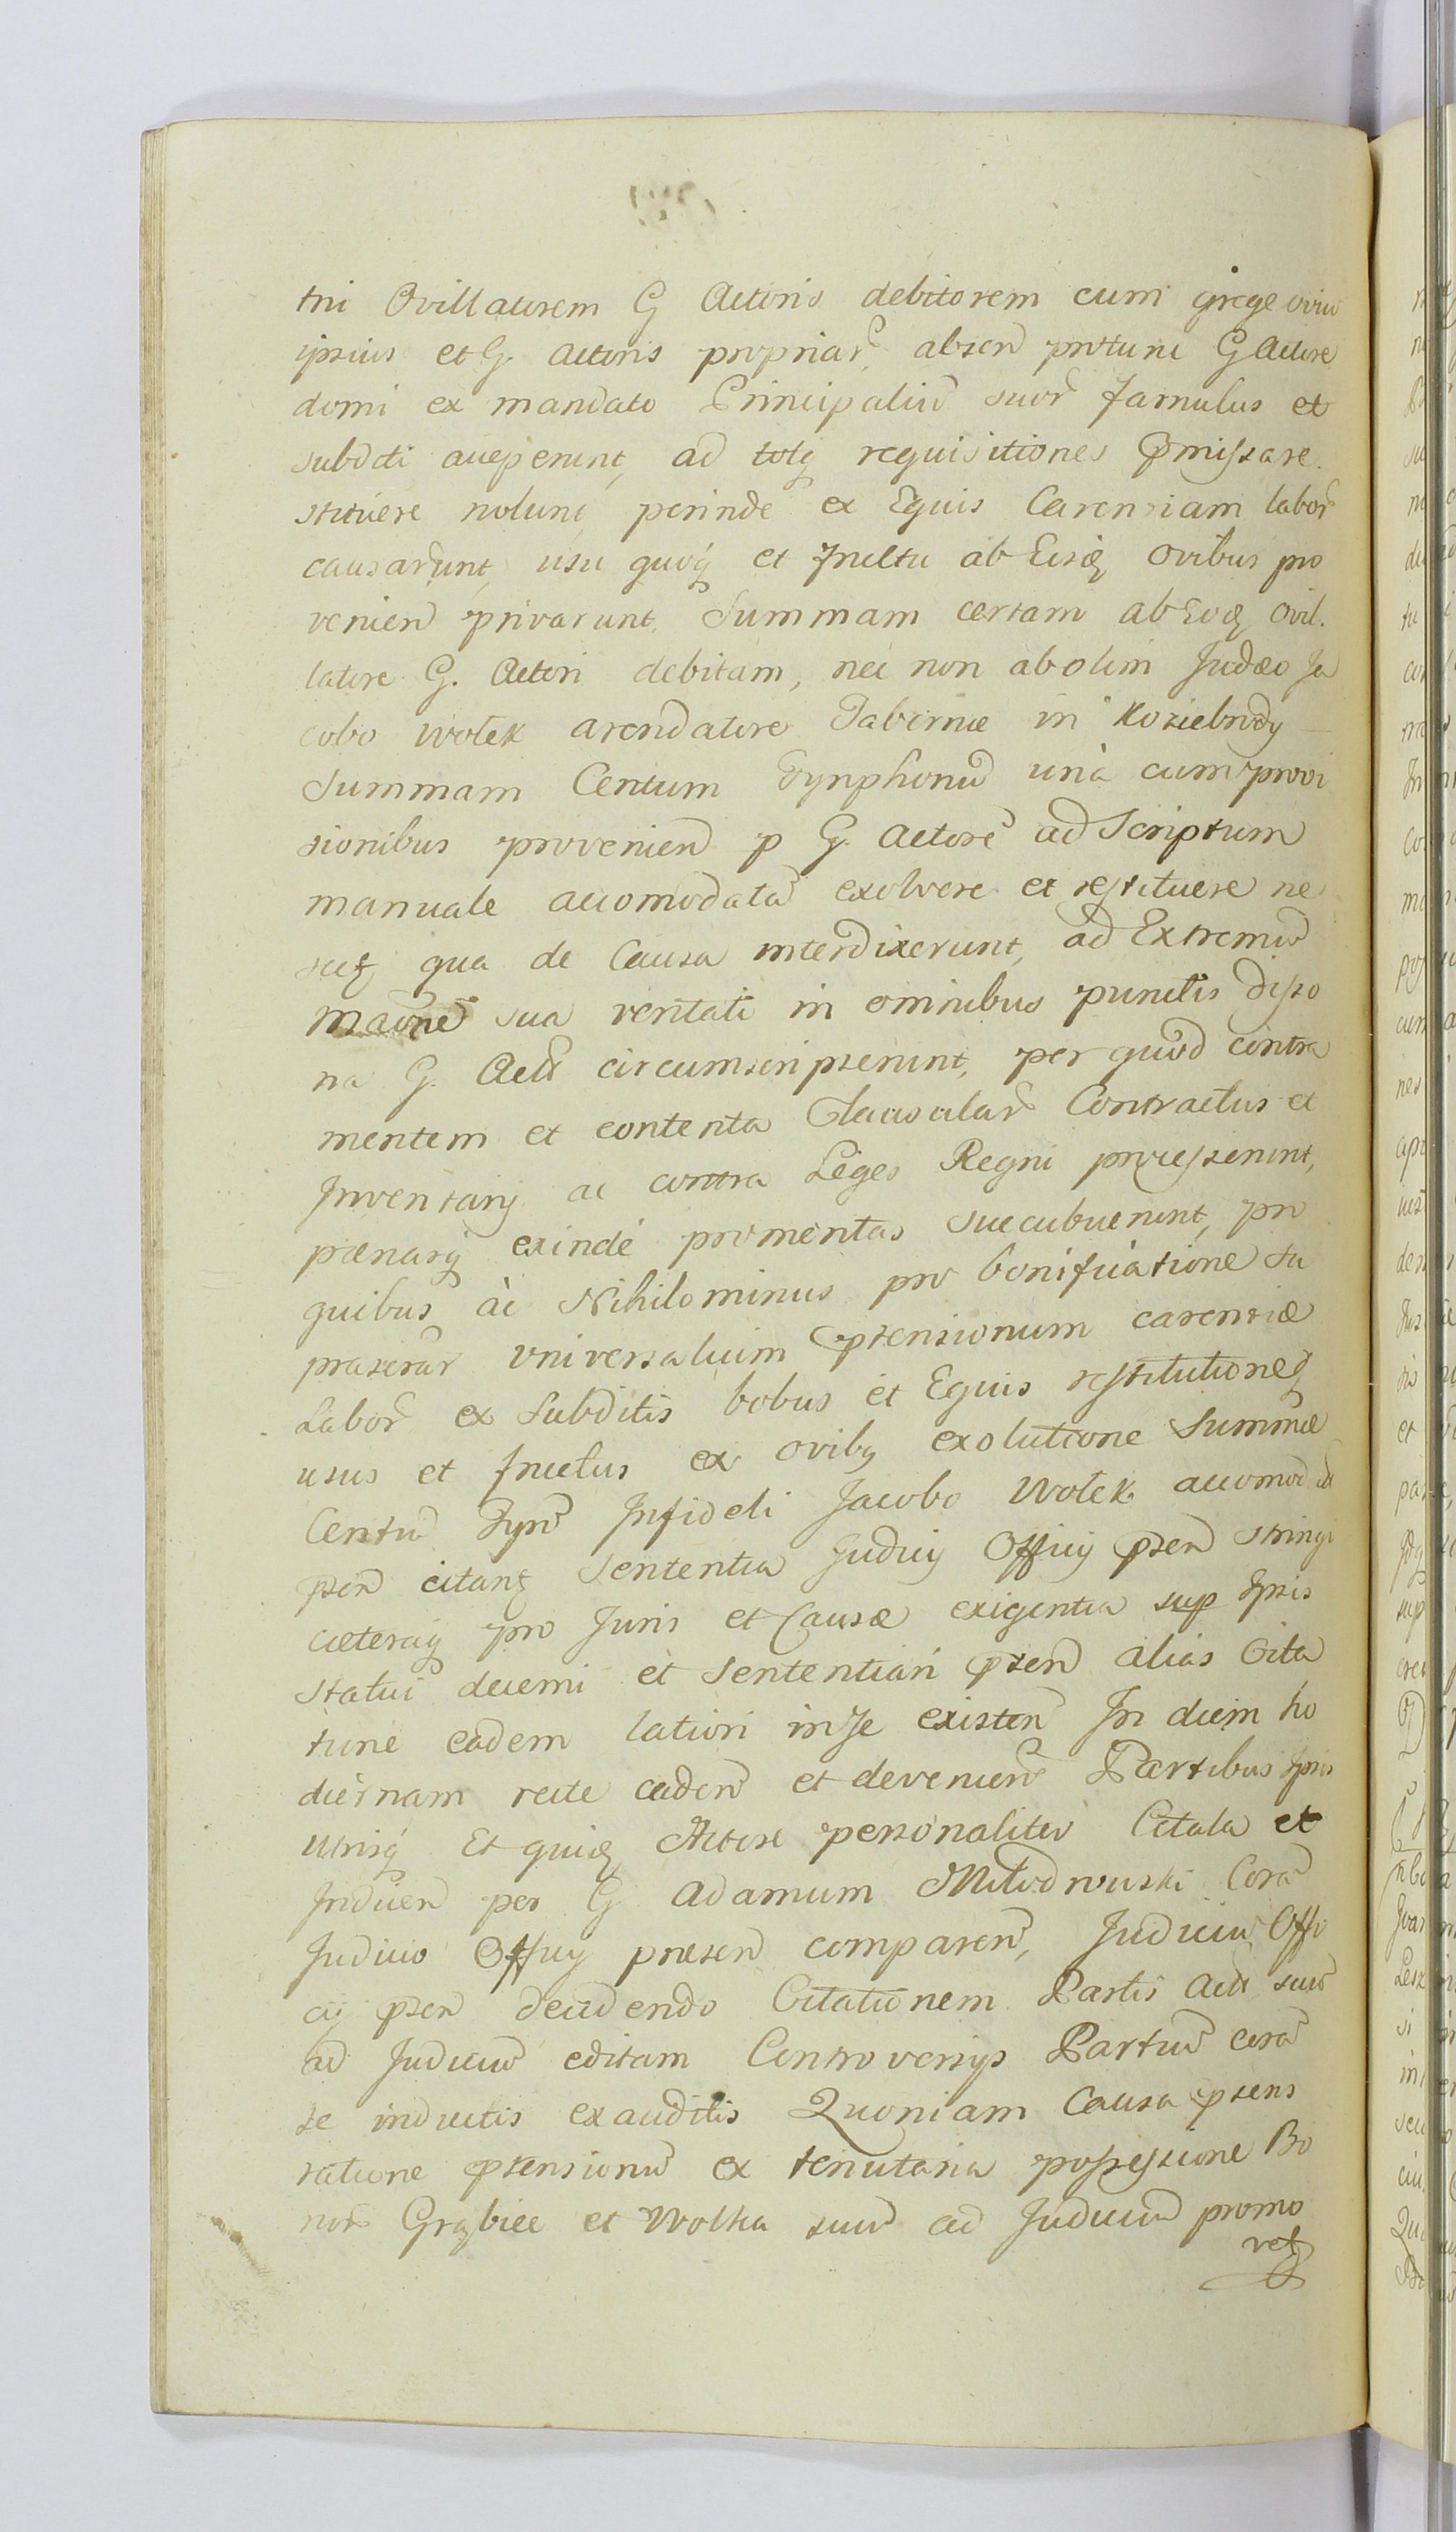 tni Ovillatorem G Actoris debitorem cum grege oviu
ipsius et G. Actoris propriar, absen protunc G Actore
domi ex mandato Principaliu suor famulus et
subdti acceperunt, ad totq requisitiones pmissa re
stituere nolunt, perinde ex Equis Carentiam labor
causarunt, usu quoq et fructu ab Eisq ovibus pro
venien privarunt. Summam certam ab Eoq ovil.
latore G. Actori debitam, nec non ab olim Judæo Ja
cobo Wołek arendatore Tabernæ in Koziebrody
Summam Centum Tynphonu unà cum provi
sionibus provenien p G. Actore ad Scriptum
manuale accomodata exolvere et restituere ne
scitq qua de Causa interdixerunt, ad Extremu
sua veritati in omnibus punctis disso
na G. Actr circumscripserunt, per quod contra
mentem et contenta Clausular Contractus et
Inventarij ac contra Leges Regni processerunt,
pænasq exinde promeritas succubuerunt, pro
quibus ac Nihilominus pro bonificatione su
praserar universalium ptensionum carentiæ
Labor ex Subditis bobus et Equis restitutioneq
usus et fructus ex ovibq exolutione Summæ
Centu Tyn Infideli Jacobo Wołek accomod
psen citant Sententia Judicij Officij psen stringi
cæteraq pro Juris et Causæ exigentia sup Ipsis
statui decerni et Sententiari psen alias Cita
tune eadem latiori in se existen In diem ho
diernam recte caden et devenien Partibus Ipsis
utrisq Et quiq Actore personaliter Citata et
Inducen per G Adamum Młodnuski Cora
Judicio Officij præsen comparen, Judiciu Offi
cij psen decidendo Citationem Partis Actr suu
ad Judiciu editam Controversijs Partiu cora
se inductis exauditis Quoniam Causa psens
ratione ptensionu ex tenutaria possessione Bo
nor Grąbiec et Wolka suu ad Judiciu promo
vet